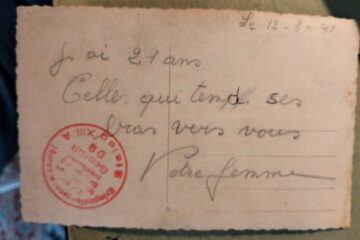 Le 12-8-41
J ai 21 ans
Celle qui tend ses
bras vers vous
Votre femme
Stalag XIII A
Geprüft
D8